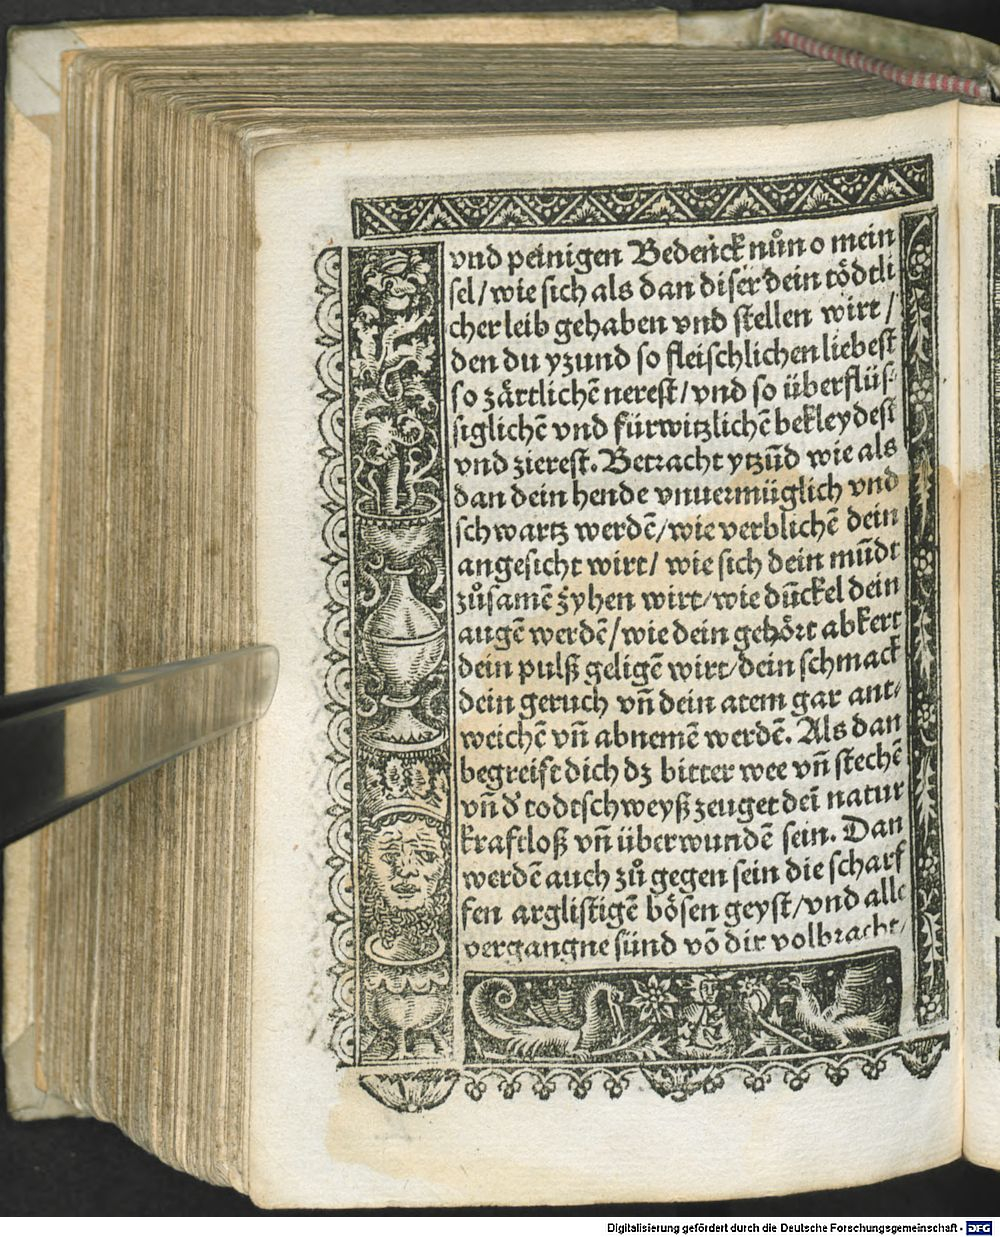 vnd peinigen Bedenck nůn o mein
sel/ wie sich als dan diser dein tödtli
cher leib gehaben vnd stellen wirt /
den du yzund so fleischlichen liebest
so zärtlichē nerest/ vnd so überflüs⸗
siglichē vnd fürwitzlichē bekleydest
vnd zierest. Betracht ytzūd wie als
dan dein hende vnuermüglich vnd
schwartz werdē/ wie verblichē dein
angesicht wirt/ wie sich dein mūdt
zůsamē zyhen wirt/ wie dūckel dein
augē werdē/ wie dein gehört abkert
dein pulß geligē wirt/ dein schmack
dein geruch vñ dein atem gar ant⸗
weichē vñ abnemē werdē. Als dan
begreift dich dz bitter wee vñ stechē
vñ d' todtschweyß zeuget deī natur
kraftloß vñ überwundē sein. Dan
werdē auch zů gegen sein die scharf
fen arglistigē bösen geyst/ vnd alle
vergangne sünd vō dir volbracht/
Digitalisierung gefördert durch die Deutsche Forschungsgemeinschaft - DFG